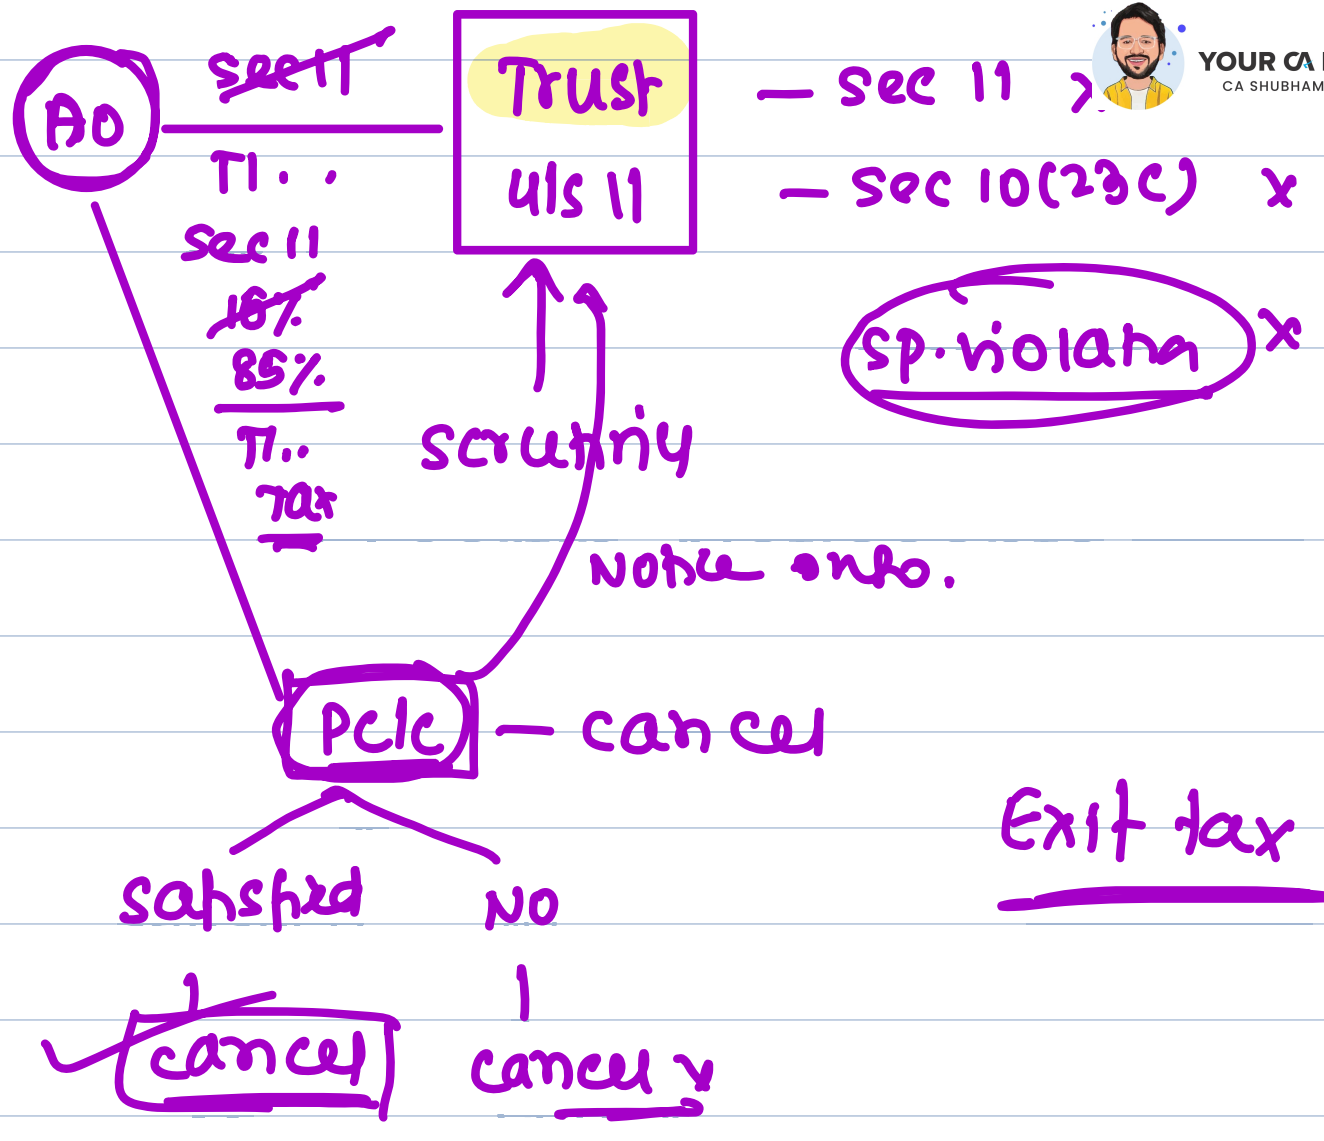 AO
sec 11
Trust
u/s 11
TI..
sec 11
15%
85%
TI..
Tax
- sec 11 x
- sec 10(23C) x
sp. violation x
scrutiny
Notice info.
PCIC - cancel
satisfied NO
cancel cancel x
Exit tax
YOUR CA
CA SHUBHAM